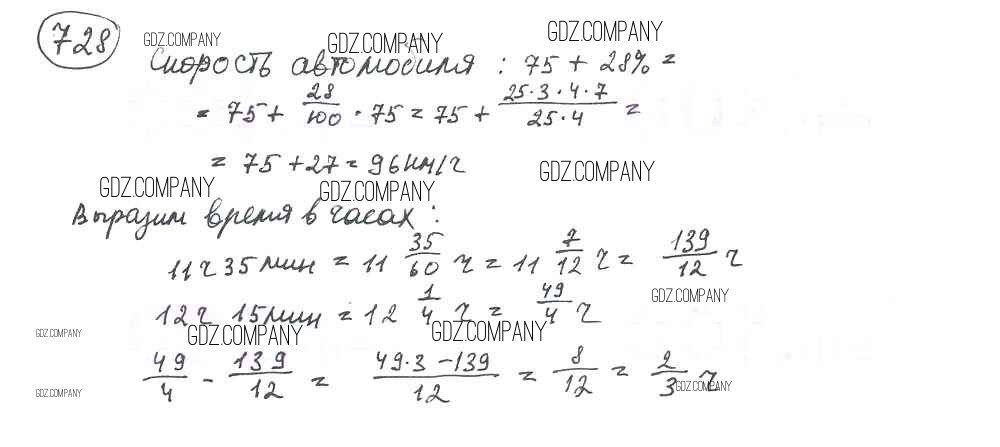 728
GDZ.COMPANY GDZ.COMPANY GDZ.COMPANY
Скорость автомобиля : 75 + 28% =
= 75 + 28/100 · 75 = 75 + 25·3·4·7/25·4 =
= 75 + 27 = 96 км/ч
GDZ.COMPANY GDZ.COMPANY GDZ.COMPANY
Выразим время в часах :
11ч 35 мин = 11 35/60 ч = 11 7/12 ч = 139/12 ч
GDZ.COMPANY
12ч 15 мин = 12 1/4 ч = 49/4 ч
GDZ.COMPANY GDZ.COMPANY GDZ.COMPANY
49/4 - 139/12 = 49·3-139/12 = 8/12 = 2/3 ч
GDZ.COMPANY GDZ.COMPANY